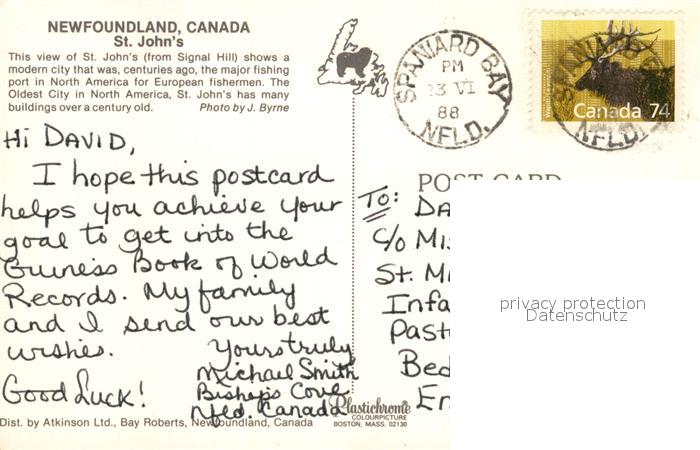 NEWFOUNDLAND, CANADA
St. John's
This view of St. John's (from Signal Hill) shows a
modern city that was, centuries ago, the major fishing
port in North America for European fishermen. The
Oldest City in North America, St. John's has many
buildings over a century old. Photo by J. Byrne
SPANIARD BAY
PM
23 VI
88
NFLD.
Canada 74
Hi DAVID,
I hope this postcard
helps you achieve your
goal to get into the
Guiness Book of World
Records. My family
and I send our best
wishes. Yours truly
Michael Smith
Good Luck! Bishop's Cove
Nfld. Canada
POST CARD
To: DA
C/o Mis
St. Mi
Infa
Past
Bed
En
privacy protection
Datenschutz
Plastichrome
COLOURPICTURE
BOSTON, MASS. 02130
Dist. by Atkinson Ltd., Bay Roberts, Newfoundland, Canada